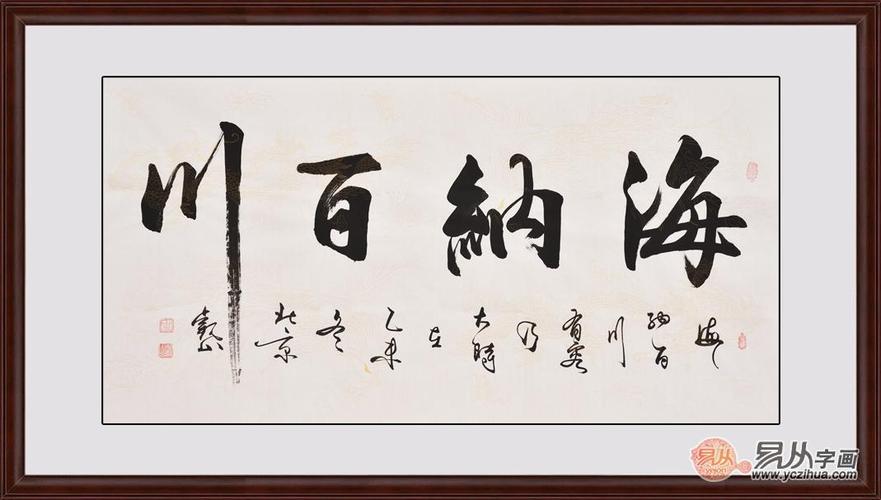 海納百川
海納百川有容乃大時在乙未冬北京
易从
yczjon
易从字画
www.yczihua.com